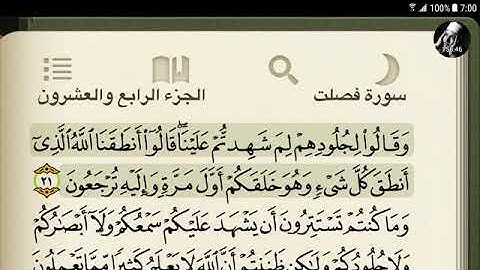 100% 7:00
سورة فصلت
الجزء الرابع والعشرون
وَقَالُوا۟ لِجُلُودِهِمْ لِمَ شَهِدتُّمْ عَلَيْنَا ۖ قَالُوٓا۟ أَنطَقَنَا ٱللَّهُ ٱلَّذِىٓ
أَنطَقَ كُلَّ شَىْءٍ وَهُوَ خَلَقَكُمْ أَوَّلَ مَرَّةٍ وَإِلَيْهِ تُرْجَعُونَ ٢١
وَمَا كُنتُمْ تَسْتَتِرُونَ أَن يَشْهَدَ عَلَيْكُمْ سَمْعُكُمْ وَلَآ أَبْصَٰرُكُمْ
وَلَا جُلُودُكُمْ وَلَٰكِن ظَنَنتُمْ أَنَّ ٱللَّهَ لَا يَعْلَمُ كَثِيرًا مِّمَّا تَعْمَلُونَ